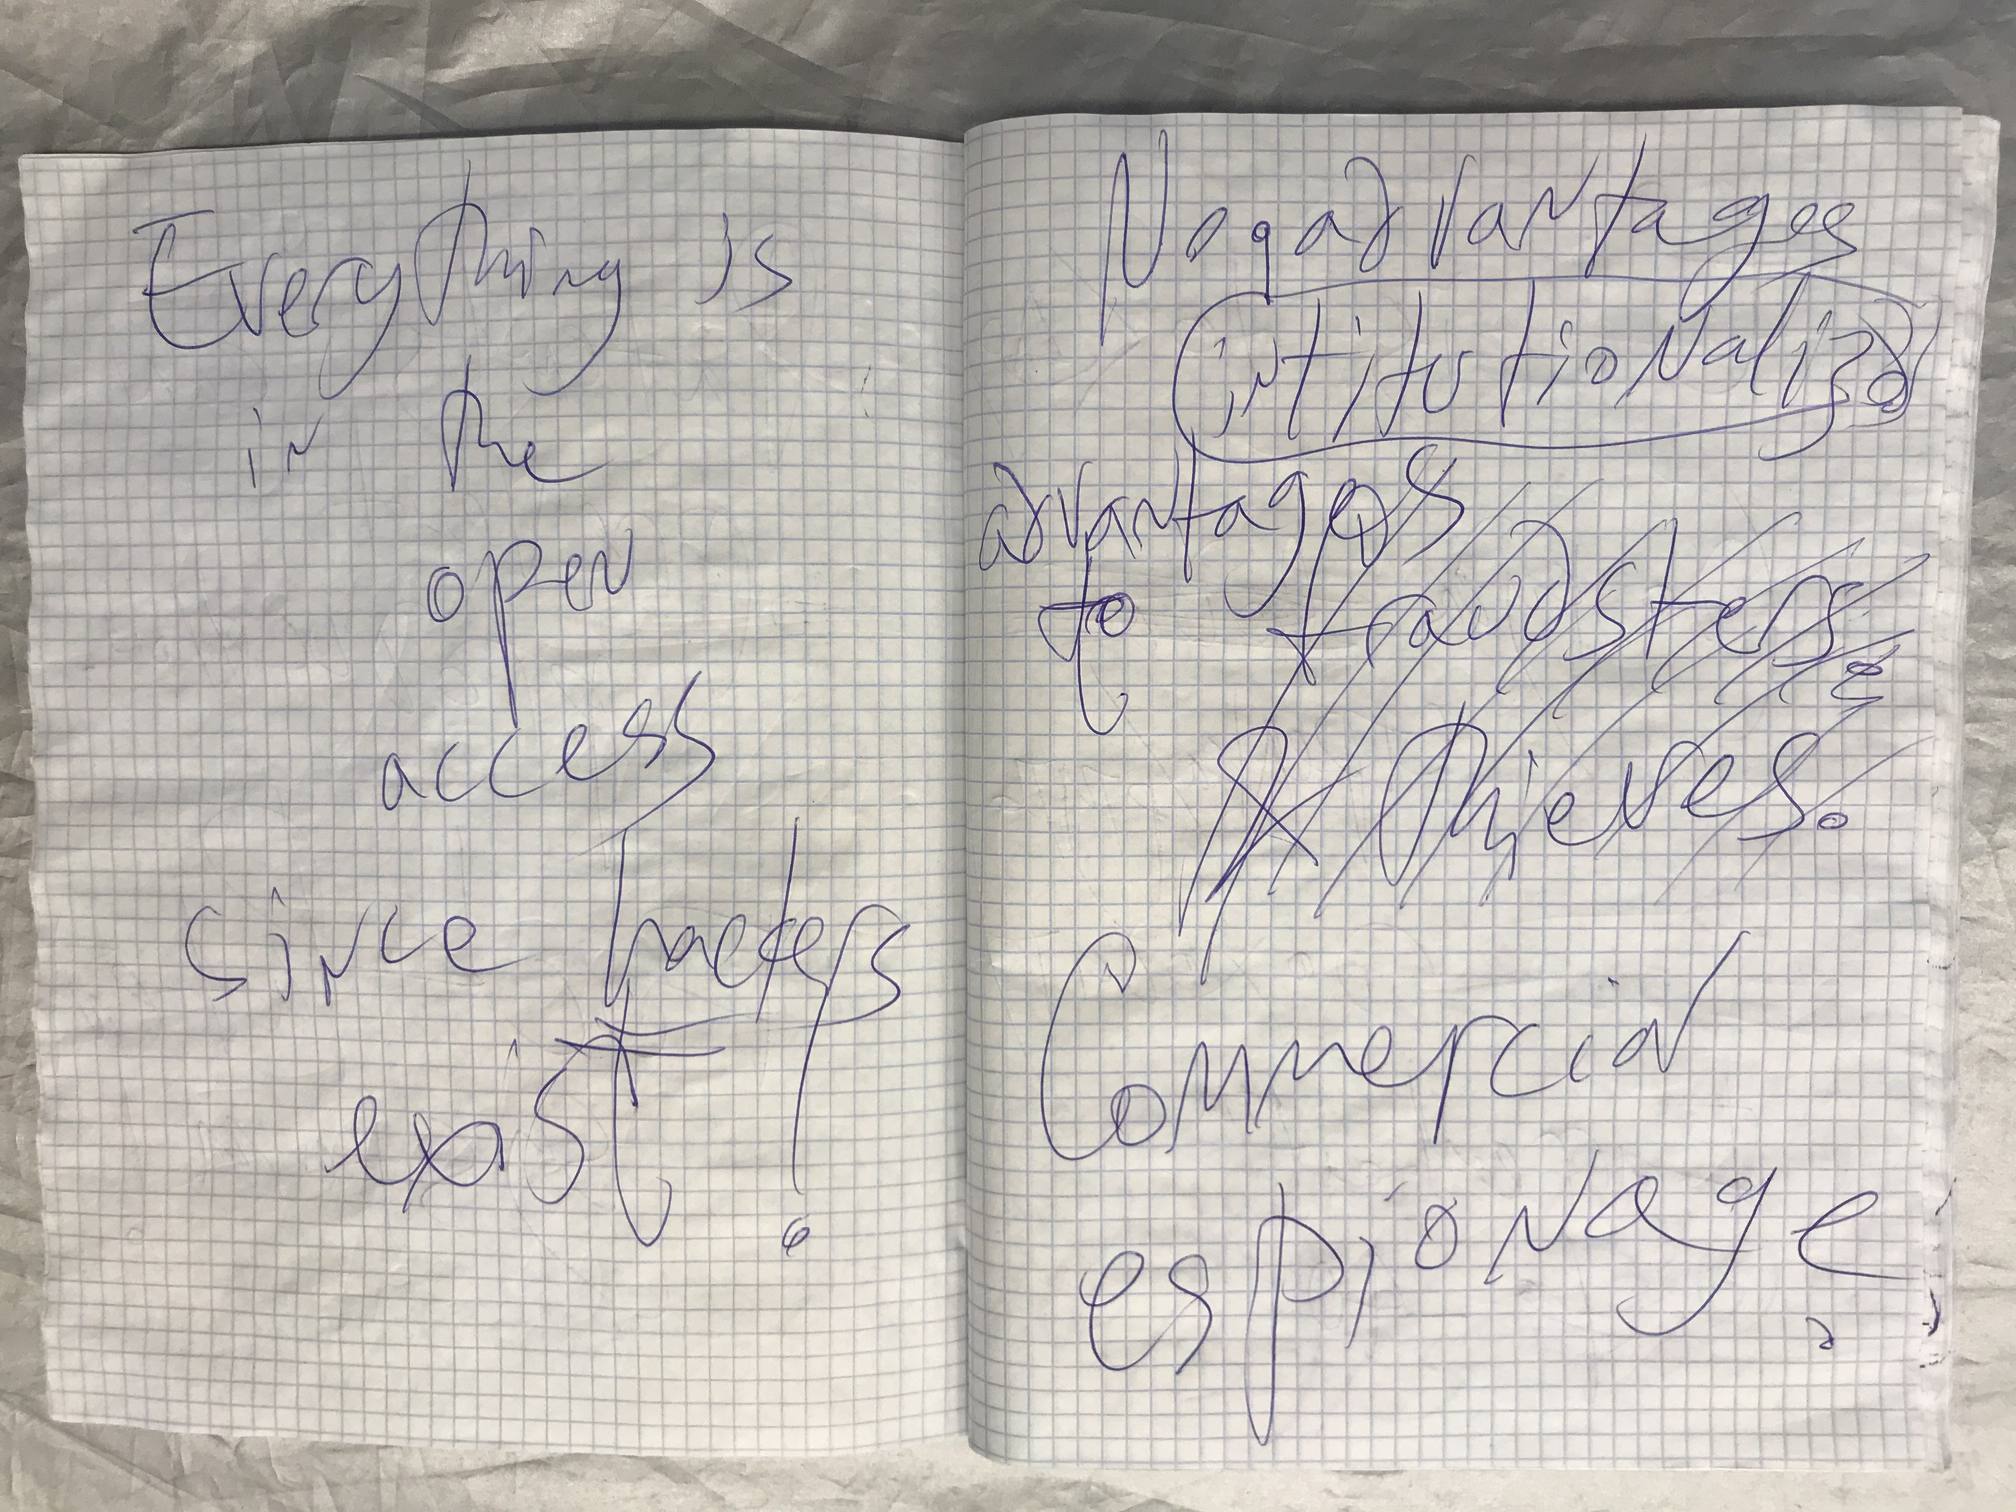 Everything is
in the
open
access
since hackers
exist!
No advantages
intitutionalizd
advantages
to fraudsters
& thieves.
Commercial
espionage